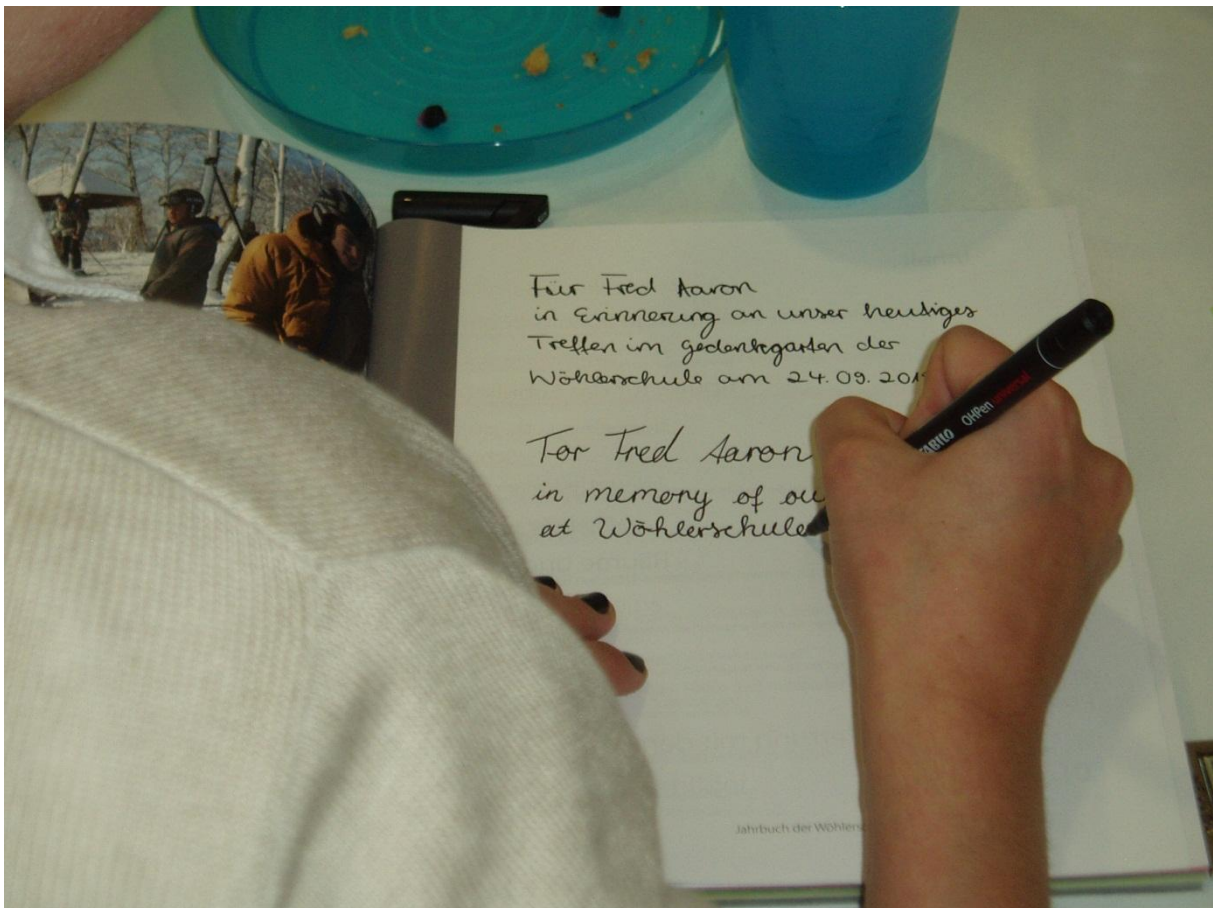 Für Fred Aaron
in Erinnerung an unser heutiges
Treffen im Gedenkgarten der
Wöhlerschule am 24.09.201
For Fred Aaron
in memory of ou
at Wöhlerschule
OHPen universal
Jahrbuch der Wöhlersc